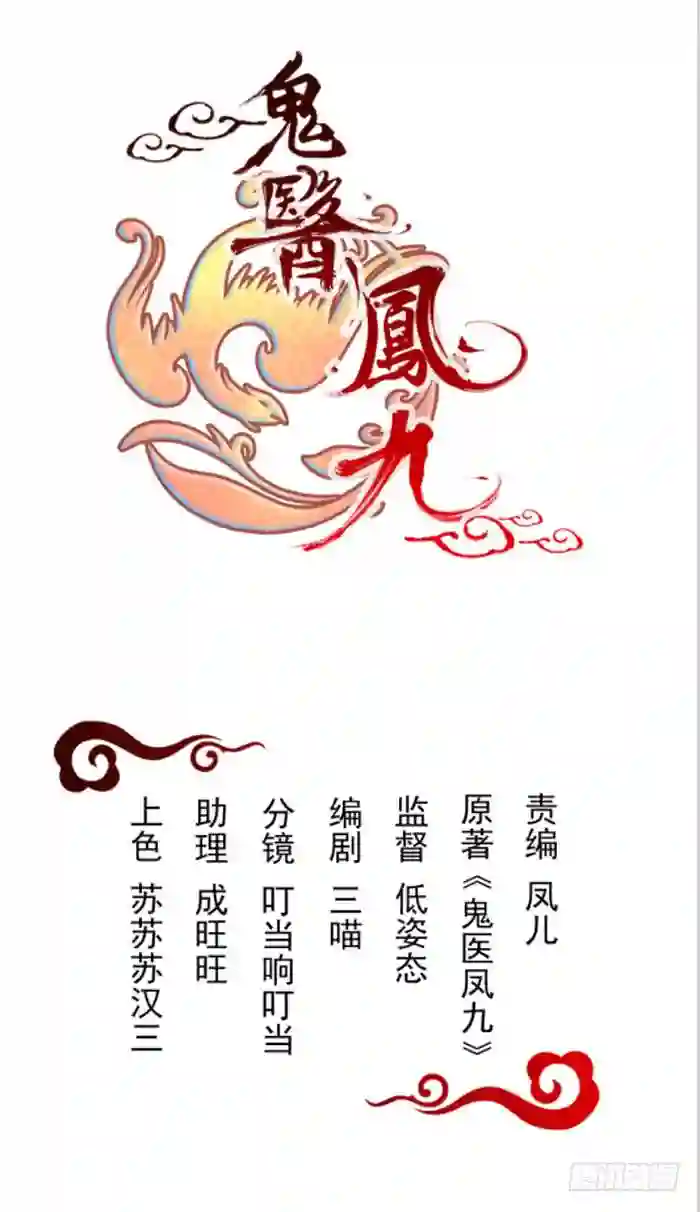 鬼
醫
鳳
九
责编 凤儿
原著《鬼医凤九》
监督 低姿态
编剧 三喵
分镜 叮当响叮当
助理 成旺旺
上色 苏苏苏汉三